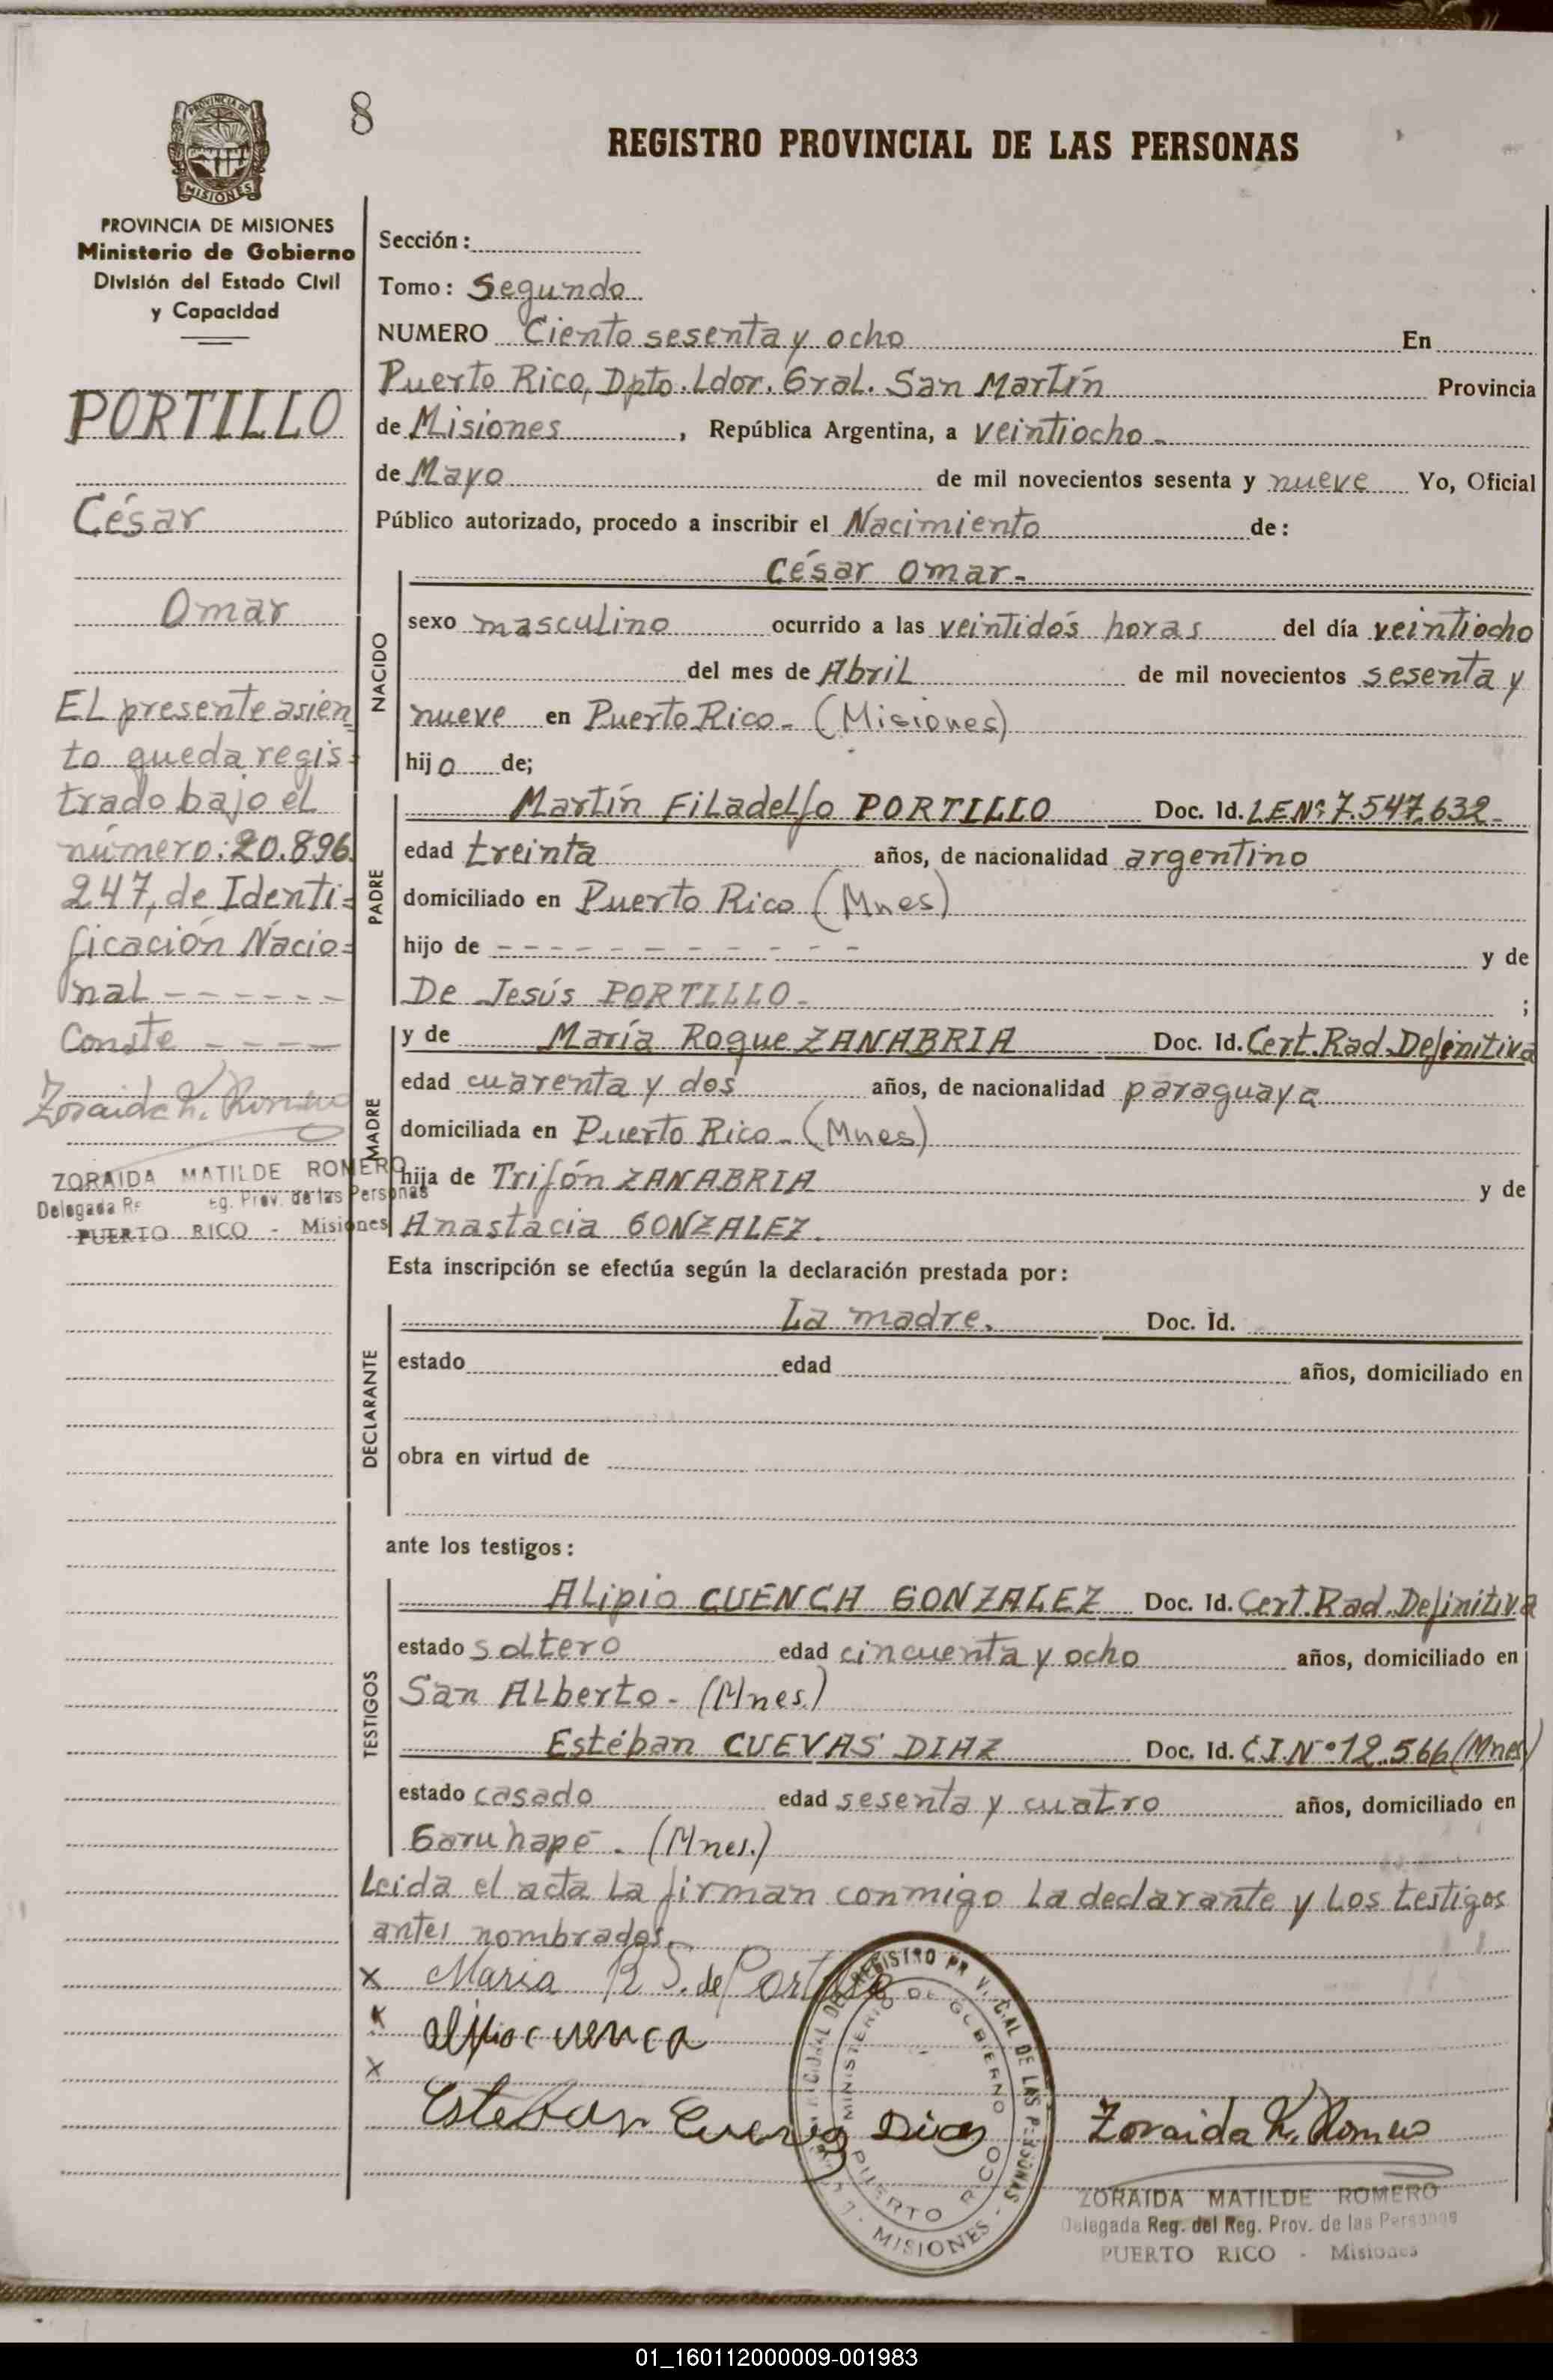 8
REGISTRO PROVINCIAL DE LAS PERSONAS
PROVINCIA DE
MISIONES
PROVINCIA DE MISIONES
Ministerio de Gobierno
División del Estado Civil
y Capacidad
PORTILLO
César
Omar
El presente asien
to queda regis=
trado bajo el
número: 20.896.
247, de Identi=
ficación Nacio=
nal - - - - - -
Conste - - - -
Zoraida M. Romero
ZORAIDA MATILDE ROMERO
Delegada Reg. Prov. de las Personas
PUERTO RICO - Misiones
Sección:
Tomo: Segundo
NUMERO Ciento sesenta y ocho En
Puerto Rico, Dpto. Ldor. Gral. San Martín Provincia
de Misiones, República Argentina, a veintiocho-
de Mayo de mil novecientos sesenta y nueve Yo, Oficial
Público autorizado, procedo a inscribir el Nacimiento de:
NACIDO
César Omar-
sexo masculino ocurrido a las veintidós horas del día veintiocho
del mes de Abril de mil novecientos sesenta y
nueve en Puerto Rico- (Misiones)
hijo de;
PADRE
Martín Filadelfo PORTILLO Doc. Id. LE Nº: 7.547.632-
edad treinta años, de nacionalidad argentino
domiciliado en Puerto Rico (Mnes)
hijo de - - - - - - - - - - - - y de
De Jesús PORTILLO- ;
MADRE
y de María Roque ZANABRIA Doc. Id. Cert. Rad. Definitiva
edad cuarenta y dos años, de nacionalidad paraguaya
domiciliada en Puerto Rico- (Mnes)
hija de Trifón ZANABRIA y de
Anastacia GONZALEZ.
Esta inscripción se efectúa según la declaración prestada por:
DECLARANTE
La madre. Doc. Id.
estado edad años, domiciliado en
obra en virtud de
ante los testigos:
TESTIGOS
Alipio CUENCA GONZALEZ Doc. Id. Cert. Rad. Definitiva
estado soltero edad cincuenta y ocho años, domiciliado en
San Alberto- (Mnes.)
Estéban CUEVAS DIAZ Doc. Id. C.I. Nº 12.566 (Mnes)
estado casado edad sesenta y cuatro años, domiciliado en
Garuhapé. (Mnes.)
Leida el acta la firman conmigo la declarante y los testigos
antes nombrados.
x Maria R S. de Portillo
x alipio cuenca
x
Esteban Cuevas Dias
Zoraida M. Romero
REGISTRO PROVINCIAL DE LAS PERSONAS
MINISTERIO DE GOBIERNO
PUERTO RICO
MISIONES
ZORAIDA MATILDE ROMERO
Delegada Reg. del Reg. Prov. de las Personas
PUERTO RICO - Misiones
01_160112000009-001983